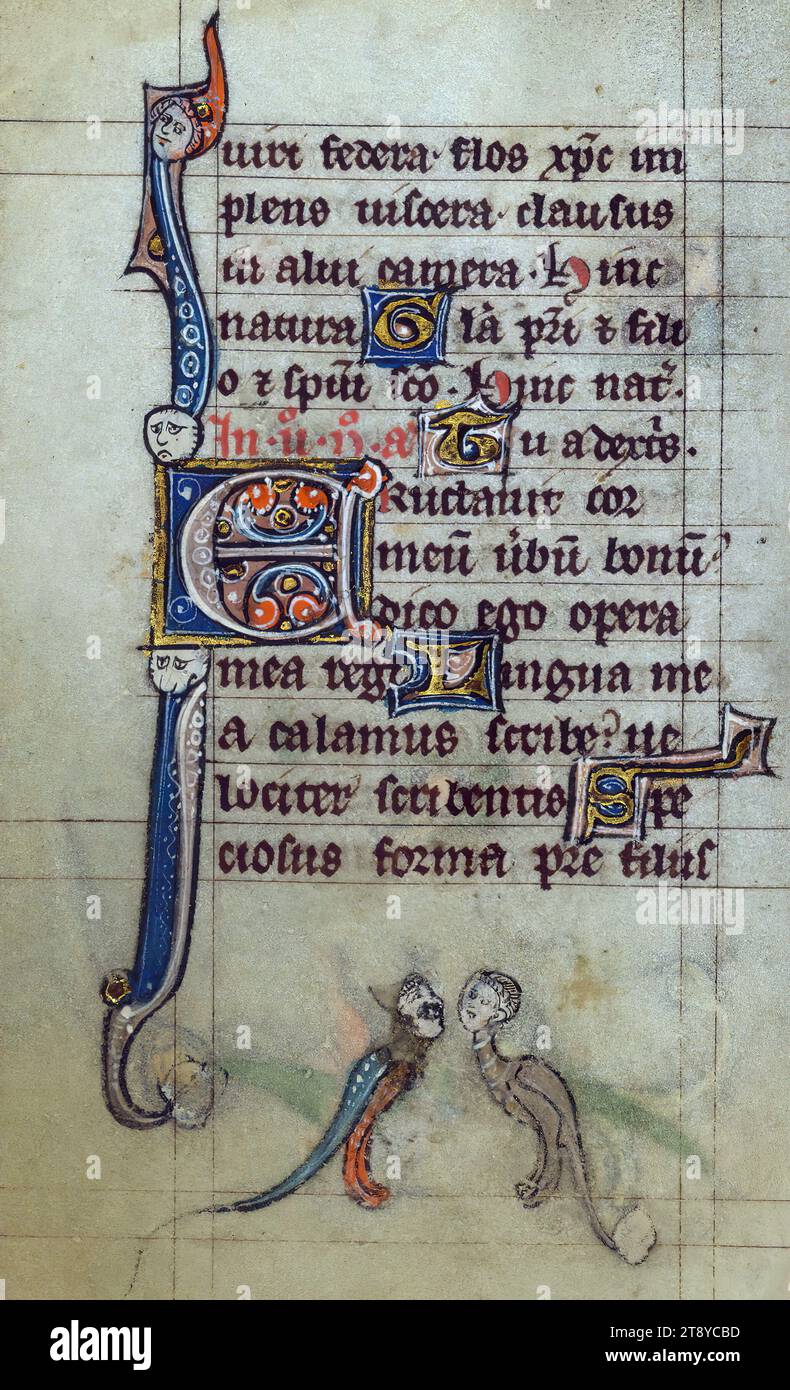 uirt federa· flos xp̄c im
plens uiscera· clausus
in alui camera· Hinc
natura Gl̄a pr̄i ⁊ fili
o ⁊ sp̄ui sc̄o· Hinc nat̄·
In· u̇· n̊· a̓ Tu a dext̄s·
ERuctauit cor
meū u̓bū bonū
dico ego opera
mea regi Lingua me
a calamus scribe ue
lociter scribentis Spe
ciosus forma pre filiis
alamy
Image ID: 2T8YCBD
www.alamy.com